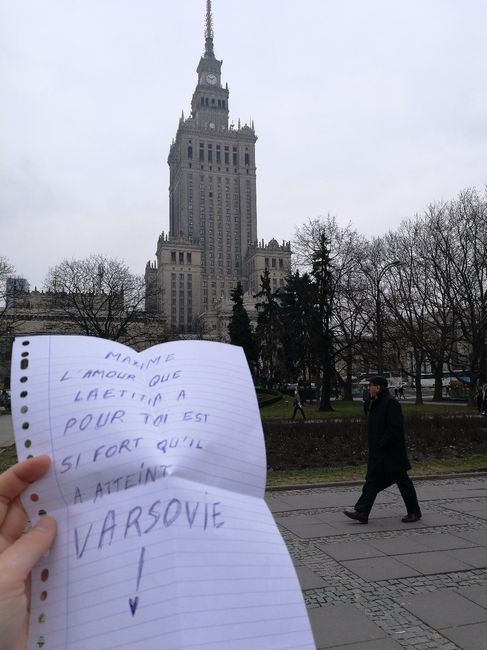 MAXIME
L'AMOUR QUE
LAETITIA A
POUR TOI EST
SI FORT QU'IL
A ATTEINT
VARSOVIE
!